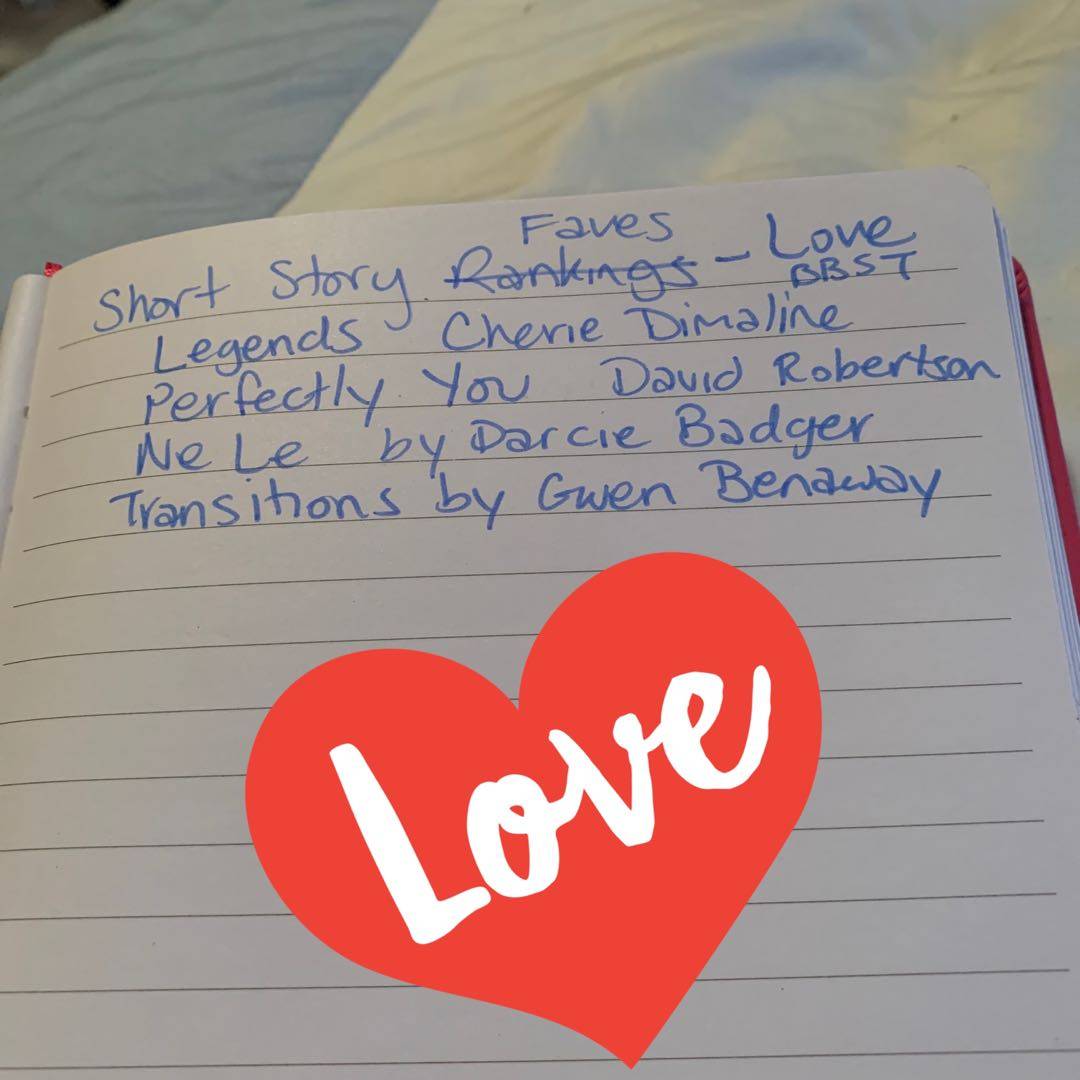 Faves
Short Story Rankings - Love
BBST
Legends Cherie Dimaline
Perfectly You David Robertson
Ne Le by Darcie Badger
Transitions by Gwen Benaway
Love